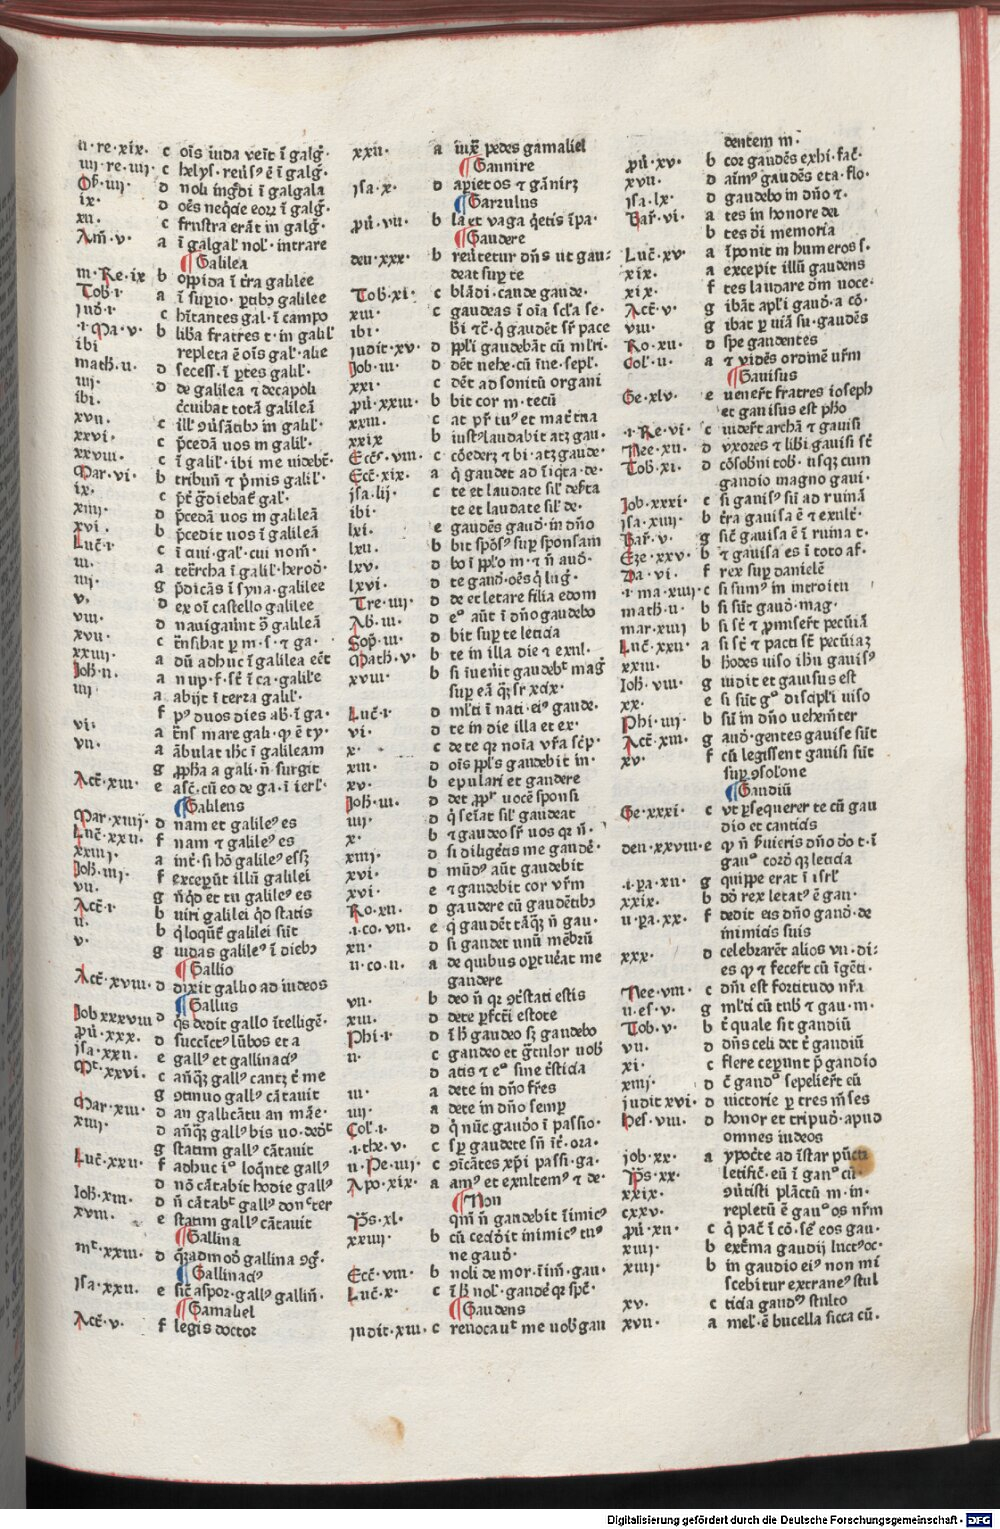 ii·re·xix· c oīs iuda veīt ī galg̃·
iiij·re·iiij· c helyſ· reuſꝰ ē ī galg̃·
Oſ·iiij· d noli ingdi ī galgala
ix· d oēs neqcie eoꝝ ī galg̃·
xii· c fruſtra erāt in galg̃·
Am̄·v· a ī galgal̃ nol̃· intrare
¶Galilea
iii·Re·ix b oppida ī tr̄a galilee
Tob·i· a ī ſupio· ptibꝫ galilee
c hītantes gal· ī campo
i·Ma·v· b fratres t· in galil̃
ibi repleta ē oīs gal̃· alie
math·ii· d ſeceſſ· ī ptes galil̃·
iiij· d de galilea ⁊ decapoli
ibi· c̄cuibat totā galileā
xvii· c in galil̃·
xxvi· c p̄cedā uos in galil̃·
xxviii· c ī galil̃· ibi me uidebt̄·
Mar·vi· b tribun̄ ⁊ p̄mis galil̃·
ix· c gal̃·
xiiij· d p̄cedā uos in galileā
xvi· b p̄cedit uos ī galileā
Luc̄·i· c ī ciui· gal̃· cui nom̄·
iii· a tetrcha ī galil̃· herod̃·
iiij· g p̄dicās ī ſyna· galilee
v· d ex oī caſtello galilee
viii· d nauigaūnt galileā
xvii· c tn̄ſibat p m· ſ· ⁊ ga·
xxiii· a dū adhuc ī galilea eēt
Joh̄·ii· a nup· f· ſt̄ ī ca· galile
iiij a abijt ī terra galil̃·
f pꝰ duos dies ab· ī ga·
vi· a tn̄s mare gal· ꝙ ē ty·
vii· a ābulat ih̄c ī galileam
g pph̄a a gali· n̄ ſurgit
Act̄·xiii· e aſc̄· cū eo de ga· ī ierl̃·
¶Galileus
Mar·xiiij· d nam et galileꝰ es
Luc̄·xxii· f nam ⁊ galileꝰ es
xxiii· a int̄· ſi hō galileꝰ eſſꝫ
Joh̄·iiij· f excepūt illū galilei
vii· g et tu galileꝰ es
Act̄·i· b uiri galilei qd ſtatis
ii· b galilei ſūt
v· g iudas galileꝰ ī diebꝫ
¶Gallio
Act̄·xviii· d dixit gallio ad iudeos
¶Gallus
Job xxxviii d qs dedit gallo ītellige̅·
pū·xxx· d ſuccīctꝰ lūbos et a
Jſa·xxii· e gallꝰ et gallinaciꝰ
Mt̄·xxvi· c añqꝫ gallꝰ cantꝫ me
g ꝯtinuo gallꝰ cātauit
Mar·xiii· d an gallicātu an māe·
xiiij· d añqꝫ gallꝰ bis uo·
g ſtatim gallꝰ cātauit
Luc̄·xxii· f adhuc iꝰ loqnte gallꝰ
d nō cātabit hodie gallꝰ
Joh̄·xiii· d n̄ cātabt gallꝰ donc̄ ter
xviii· e ſtatim gallꝰ cātauit
¶Gallina
mt̄·xxiii· d qꝫadmodū gallina ꝯg̃·
¶Gallinaciꝰ
Jſa·xxii· e ſic̄ aſpor· gallꝰ gallin̄·
¶Gamaliel
Act̄·v· f legis doctor
xxii· a iux̄ pedes gamaliel
¶Gannire
Jſa·x· d apietos ⁊ gānirꝫ
¶Garrulus
pū·vii· b la et vaga qetis īpa·
¶Gaudere
deu·xxx· b reūtetur dn̄s ut gau-
deat ſup te
Tob·xi· c blādi· caude gaude·
xiii· c gaudeas ī oīa ſcl̄a ſe·
ibi· bi tc̄· q gaudēt ſr̄ pace
iudit·xv· d ppl̄i gaudebāt cū ml̄ri·
Job·iii· d dēt uehe· cū īue· ſepl̄·
xxi· c dēt ad ſonitū organi
pū·xxiii· b bit cor m· tecū
xxiii· c at pr̄ tuꝰ et mat̄ tua
xxix b iuſtꝰ laudabit atqꝫ gau·
Eccs̄·viii· c cōederꝫ ⁊ bi· atqꝫ gaude·
Ecc̄·xix· a q gaudet ad īiqta·de·
Jſa·lij· c te et laudate ſil̃ deſerta
ibi· te et laudate ſil̃ de·
lxi· e gaudēs gaud̄· in dn̄o
lxii· b bit ſpōſꝰ ſup ſponſam
lxv· d bo ī ppl̄o m· ⁊ n̄ aud̄·
lxvi· d te gaud̄· oēs q lug̃·
Tre·iiij· d de et letare filia edom
Ab·iii· d eꝰ aūt ī dn̄o gaudebo
Sop̄·iii· d bit ſup te leticia
Math·v· b te in illa die ⁊ exul·
xviii· b ſi īuen̄it gaudebt mag̃
ſup eā qꝫ ſr xcix·
Luc̄·i· d ml̄ti ī nati· eiꝰ gaude·
vi· d te in die illa et ex·
x· c de te qꝛ noīa vr̄a ſc̄p·
xiii· d oīs ppl̄s gaudebit in·
xv· b epulari et gaudere
Joh̄·iii· d det ppt̄ uocē ſponſi
iiij· d q ſeīat ſil̃ gaudeat
x· b ⁊ gaudeo ſr̄ uos qꝛ n̄·
xiiij· d ſi diligētis me gaudē·
xvi· d mūdꝰ aūt gaudebit
xvi· e ⁊ gaudebit cor vr̄m
Ro·xii· d gaudere cū gaudētibꝫ
·i·co·vii· e q gaudēt tāqꝫ n̄ gau·
xii· d ſi gaudet unū mēbrū
ii·co·ii· a de quibus optuēat me
gaudere
vii· b deo n̄ qꝛ ꝯtſtati eſtis
xiii· d dete pfcti eſtote
Phi·i· d ī h̄ gaudeo ſꝫ gaudebo
ii· c gaudeo et g̃tulor uob̄
d atis ⁊ eꝰ ſine tſticia
iii· a dete in dn̄o fr̄es
iiij· a dete in dn̄o ſemp
Col̃·i· d q nūc gaudō ī paſſio·
·i·the·v· c ſp gaudete ſn̄ īt̄· ora·
ii·Pe·iiij· c ꝯicātes xp̄i paſſi·ga·
Apo·xix· a amꝰ et exultemꝰ ⁊ de·
¶Non
Ps̄·xl· qm̄ n̄ gaudebit īimicꝰ
xxiiij· b cū cecidit inimicꝰ tuꝰ
ne gaud̄·
Ecc̄·viii· b noli de mor· īim̄· gau·
Luc̄·x· c ī h̄ nol̃· gaudē qꝛ ſpc̄·
¶Gaudens
iudit·xiii· c reuocaut me uob̄ gau
dentem in·
pū·xv· b cor gaudēs exhi· fac̄·
xvii· d aīmꝰ gaudēs eta·flo·
Jſa·lx· d gaudebo in dn̄o ⁊·
Bar̄·vi· a tes in honore dei
b tes dī memoria
Luc̄·xv· a īponit in humeros ſ·
xix· a excepit illū gaudens
xix· f tes laudare dm̄ uoce·
Act̄·v· g ibāt apl̄i gaud̄· a cō·
viii· g ibat p uiā ſu· gaudēs
Ro·xii· d ſpe gaudentes
Col̃·ii· a ⁊ vidēs ordinē ur̄m
¶Gauiſus
Ge·xlv· e uenert̄ fratres ioſeph
et gauiſus eſt pho
·i·Re·vi· c uidert̄ archā ⁊ gauiſi
Nee·xii· d vxores ⁊ libi gauiſi ſt̄
Tob·xi· d cōſobni tob· uſqꝫ cum
gaudio magno gaui·
Job·xxxi· c ſi gauiſꝰ ſū ad ruinā
Jſa·xiiij· b tr̄a gauiſa ē ⁊ exult̄·
Bar̄·v· g ſic̄ gauiſa ē ī ruina t·
Eze·xxv· b ⁊ gauiſa es ī toto af·
Da·vi· f rex ſup danielē
·i·ma·xiiij· c ſi ſumꝰ in introitu
math·ii· b ſi ſūt gaud̄·mag·
mar·xiiij b ſi ſt̄ ⁊ pmiſert̄ pecūiā
Luc̄·xxii· a ſi ſt̄ ⁊ pacti ſt̄ pecūiaꝫ
xxiii· b h̄odes uiſo ih̄u gauiſꝰ
Joh̄·viii· g uidit et gauiſus eſt
xx· e ſi ſūt gꝰ diſcipl̄i uiſo
Phi·iiij· b ſū in dn̄o uehemt̄er
Act̄·xiii· g aud̄· gentes gauiſe ſūt
xv· f cū legiſſent gauiſi ſūt
ſup ꝯſolōne
¶Gaudiū
Ge·xxxi· c vt pſequerer te cū gau
dio et canticis
deu·xxviii· e ꝙ n̄ ſuieris dn̄o dō t·ī
gauꝰ cord̄ qꝫ leticia
·i·pa·xii· g quippe erat ī iſrl̃
xxix· b dō rex letatꝰ ē gau·
ii·pa·xx· f dedit eis dn̄o gaud̄·de
inimicis ſuis
xxx· d celebrarēt alios vii·di-
es ꝙ ⁊ fecert̄ cū īgēti·
Nee·viii· c dn̄i eſt fortitudo nr̄a
ii·eſ·v· g ml̄ti cū tub̄ ⁊ gau·m·
Tob·v· b t̄ quale ſit gaudiū
vii· d dn̄s celi det t̄ gaudiū
xi· c flere cepunt p̄ gaudio
xiiij· d c̄ gaudꝰ ſepeliert̄ eū
iudit xvi· d victorie p tres mſes
heſ·viii· d honor et tripud̄·apud
omnes iudeos
iob·xx· a ypoct̄e ad īſtar pūcti
Ps̄·xx· letific̄· eū ī gauꝰ cū·
xxix· ꝯūtiſti plāctū m·in·
cxxv· repletū ē gauꝰ os nr̄m
pū·xii· c q pac̄ ī cō·ſt̄ eos gau·
xiiij· b ext̄ma gaudij luctꝰ oc·
xiiij· b in gaudio eiꝰ non mi
ſcebitur extraneꝰ ſtul
xv· c ticia gaudꝰ ſtulto
xvii· a mel·ē bucella ſicca cū·
Digitalisierung gefördert durch die Deutsche Forschungsgemeinschaft - DFG